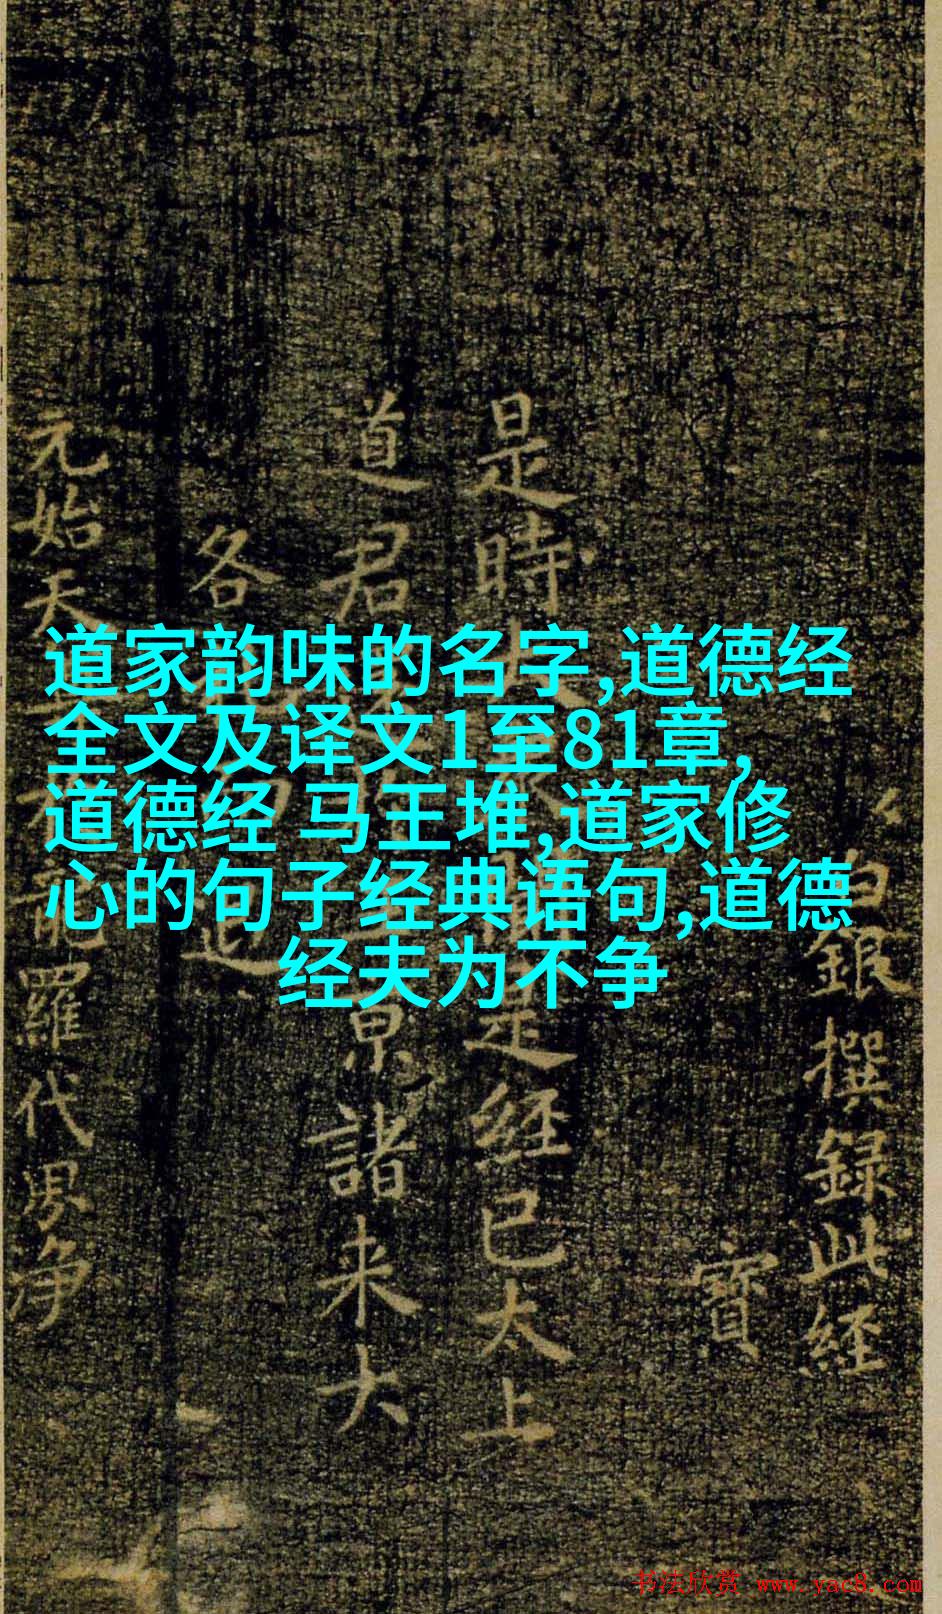 道家韵味的名字,道德经
全文及译文1至81章,
道德经 马王堆,道家修
心的句子经典语句,道德
经夫为不争
白銀撰録此經
寶
是時是經已太上
道君京諸来大
各
元始天羅代界淨
书法欣赏 www.yac8.com